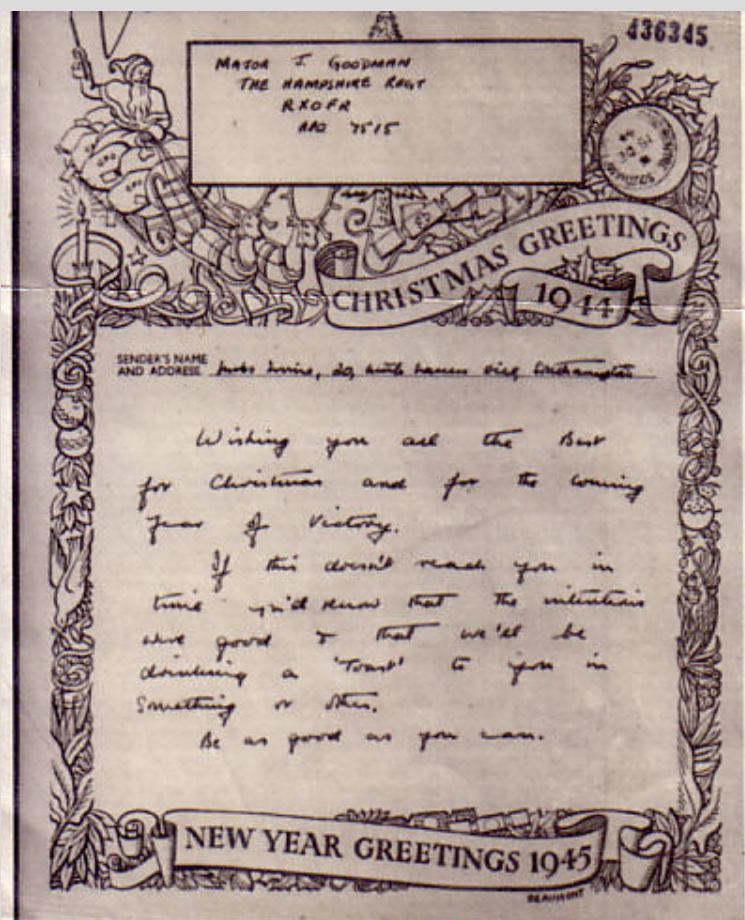 436345
MAJOR J. GOODMAN
THE HAMPSHIRE REGT
RXOFR
AAQ 7515
CHRISTMAS GREETINGS
1944
SENDER'S NAME
AND ADDRESS
Wishing you all the Best
for Christmas and for the coming
Year of Victory.
If this doesn't reach you in
time you'd know that the intentions
were good & that we'll be
drinking a 'Toast' to you in
something or other.
Be as good as you can.
NEW YEAR GREETINGS 1945
BEAUMONT